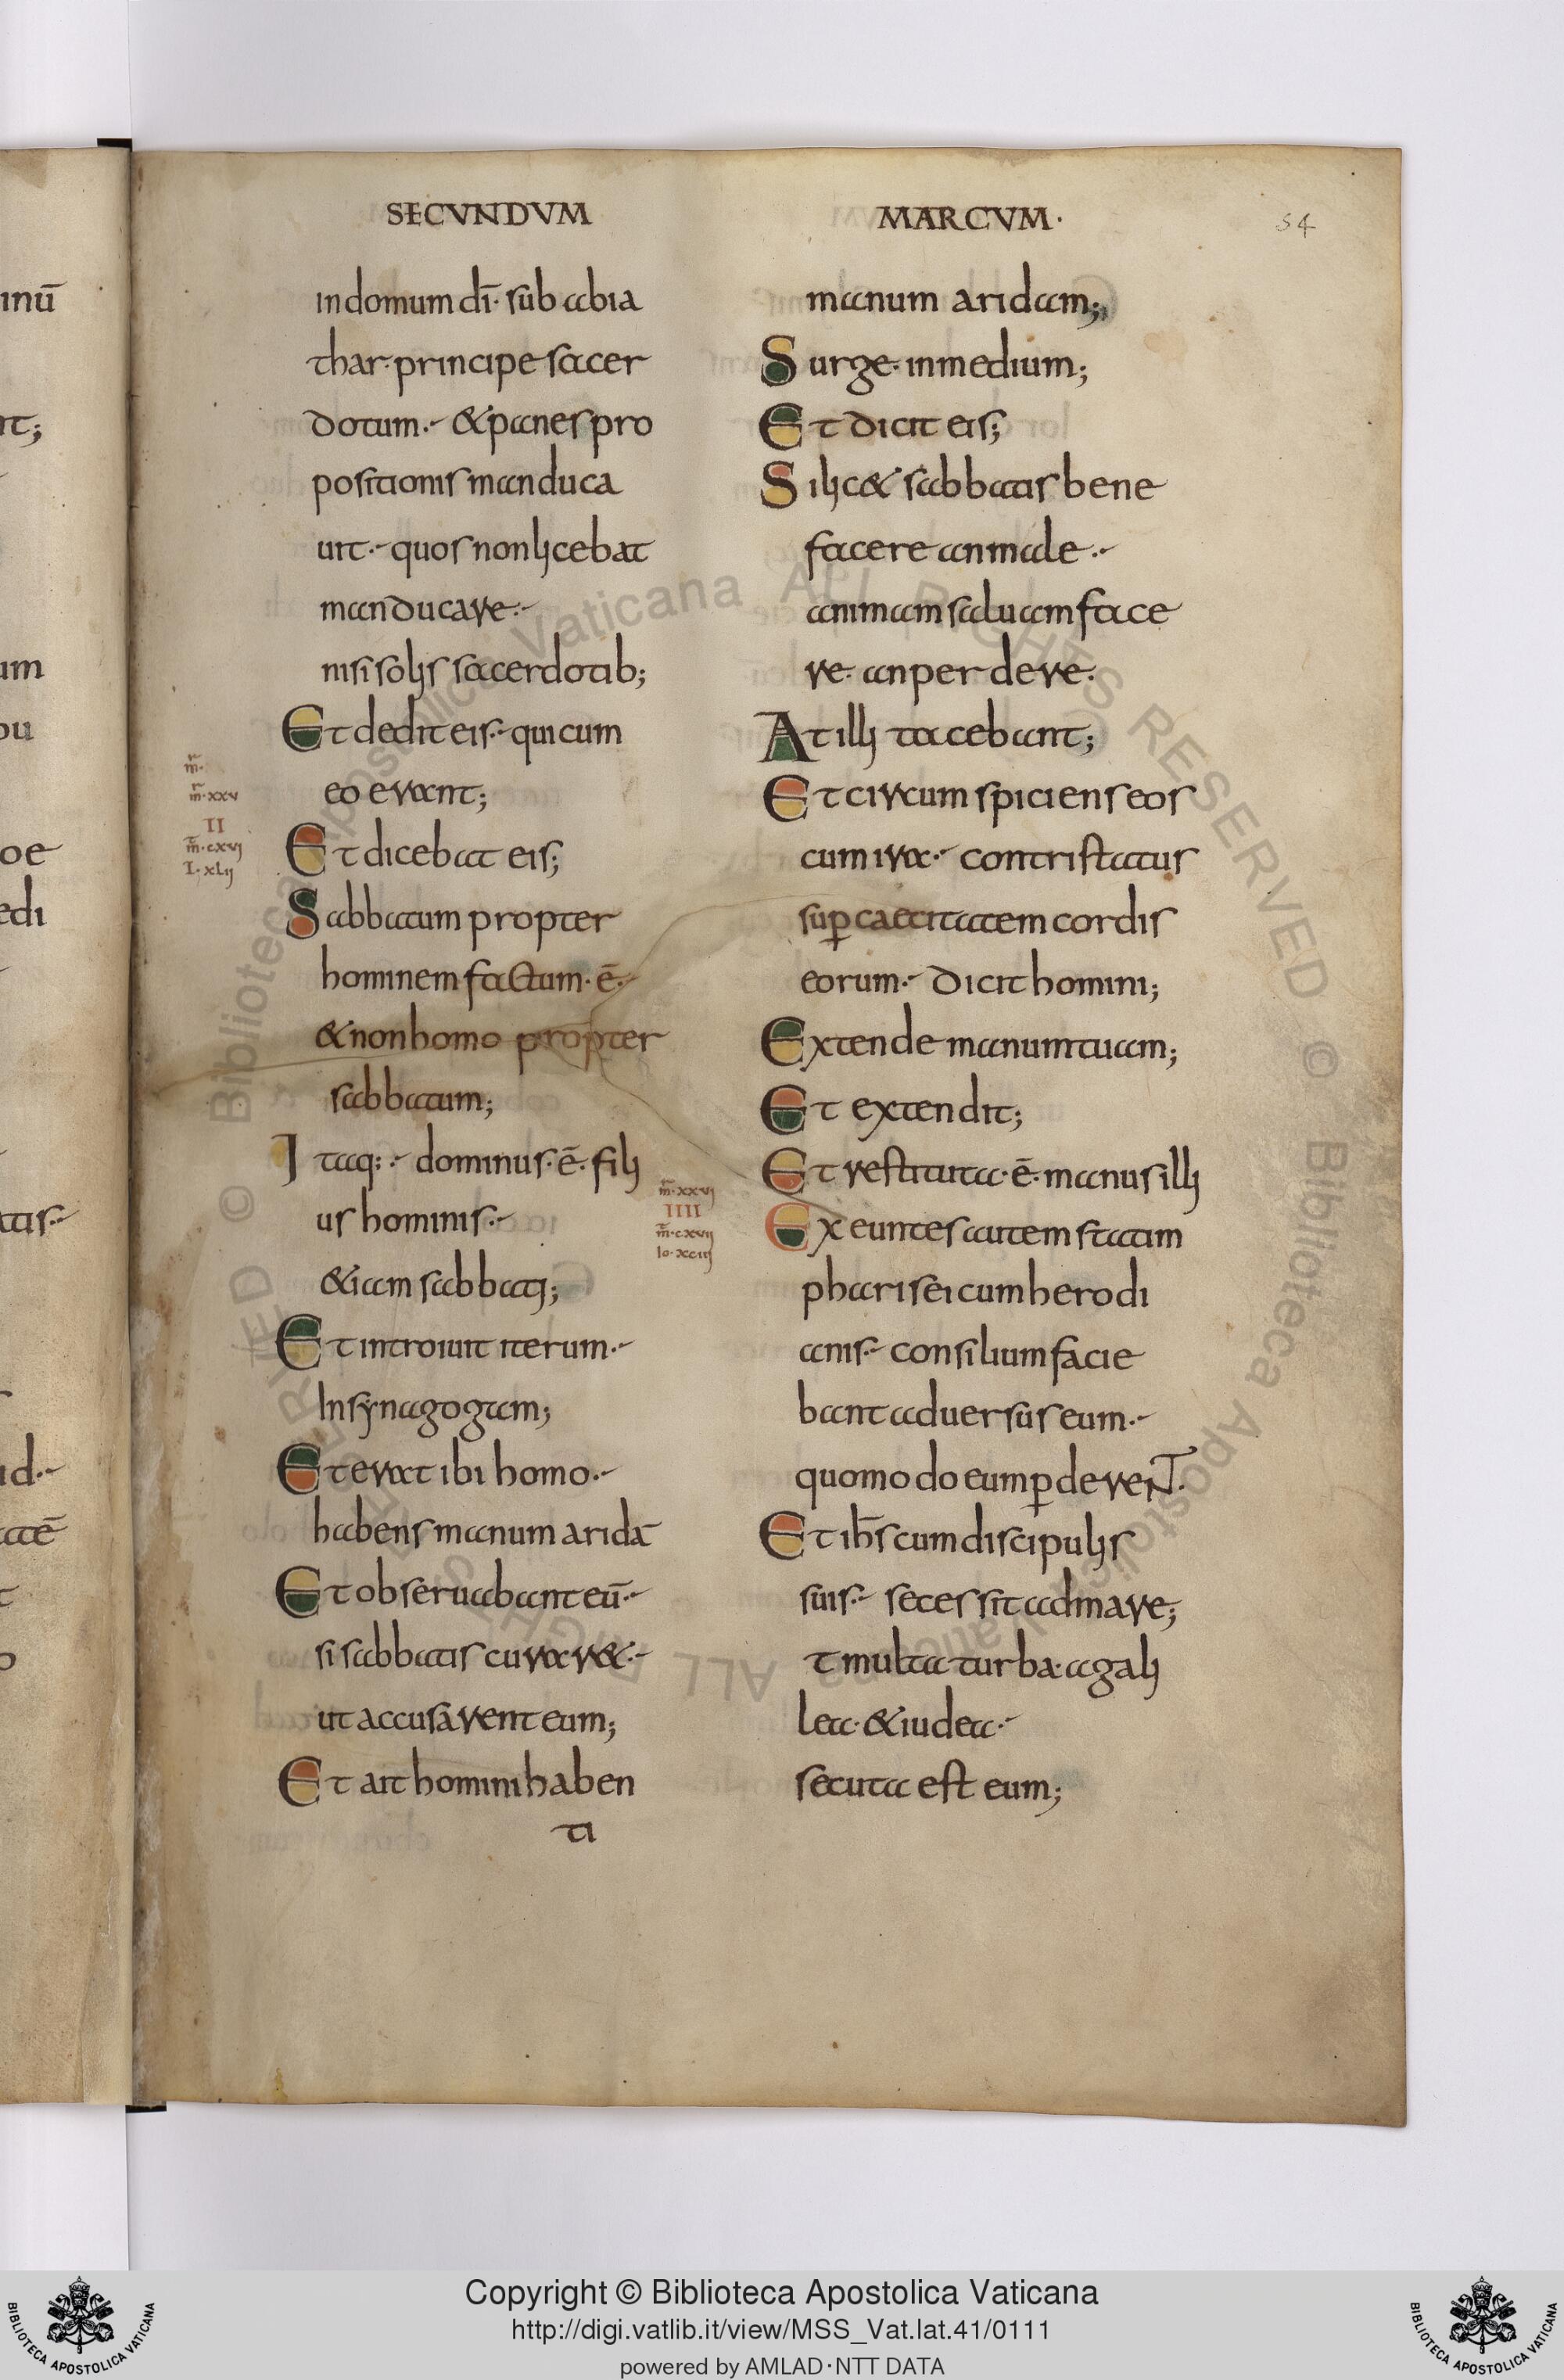 SECVNDVM
indomum dī· sub abia
thar· principe sacer
dotum· & panes pro
positionis manduca
uit· quos non licebat
manducare·
nisi solis sacerdotib;
Et dedit eis· qui cum
eo erant;
Et dicebat eis;
Sabbatum propter
hominem factum· ē·
& non homo propter
sabbatum;
Itaq:· dominus· ē· fili
us hominis·
& iam sabbati;
Et introiuit iterum·
In synagogam;
Et erat ibi homo·
habens manum aridā
Et obseruabant eū·
si sabbatis curar&·
ut accusarent eum;
Et ait homini haben
ti
m̄·
m̄·xxv
II
m̄·cxvi
L·xlii
MARCVM·
54
manum aridam;
Surge· in medium;
Et dicit eis;
Si lic& sabbatis bene
facere an male·
animam saluam face
re· an perdere·
At illi tacebant;
Et circumspiciens eos
cum ira· contristatus
sup caecitatem cordis
eorum· dicit homini;
Extende manum tuam;
Et extendit;
Et restituta· ē· manus illi
Exeuntes autem statim
pharisei cum herodi
anis· consilium facie
bant aduersus eum·
quomodo eum pderenT·
Et ih̄s cum discipulis
suis· secessit ad mare;
t multa turba· a gali
lea· & iudea·
secuta est eum;
m̄·xxvi
IIII
m̄·cxvii
Io·xciii
inū
nt;
um
ou
oe
edi
atis·
ud·
Copyright © Biblioteca Apostolica Vaticana
http://digi.vatlib.it/view/MSS_Vat.lat.41/0111
powered by AMLAD·NTT DATA
BIBLIOTECA APOSTOLICA VATICANA
BIBLIOTECA APOSTOLICA VATICANA
© Biblioteca Apostolica Vaticana ALL RIGHTS RESERVED © Biblioteca Apostolica Vaticana ALL RIGHTS RESERVED